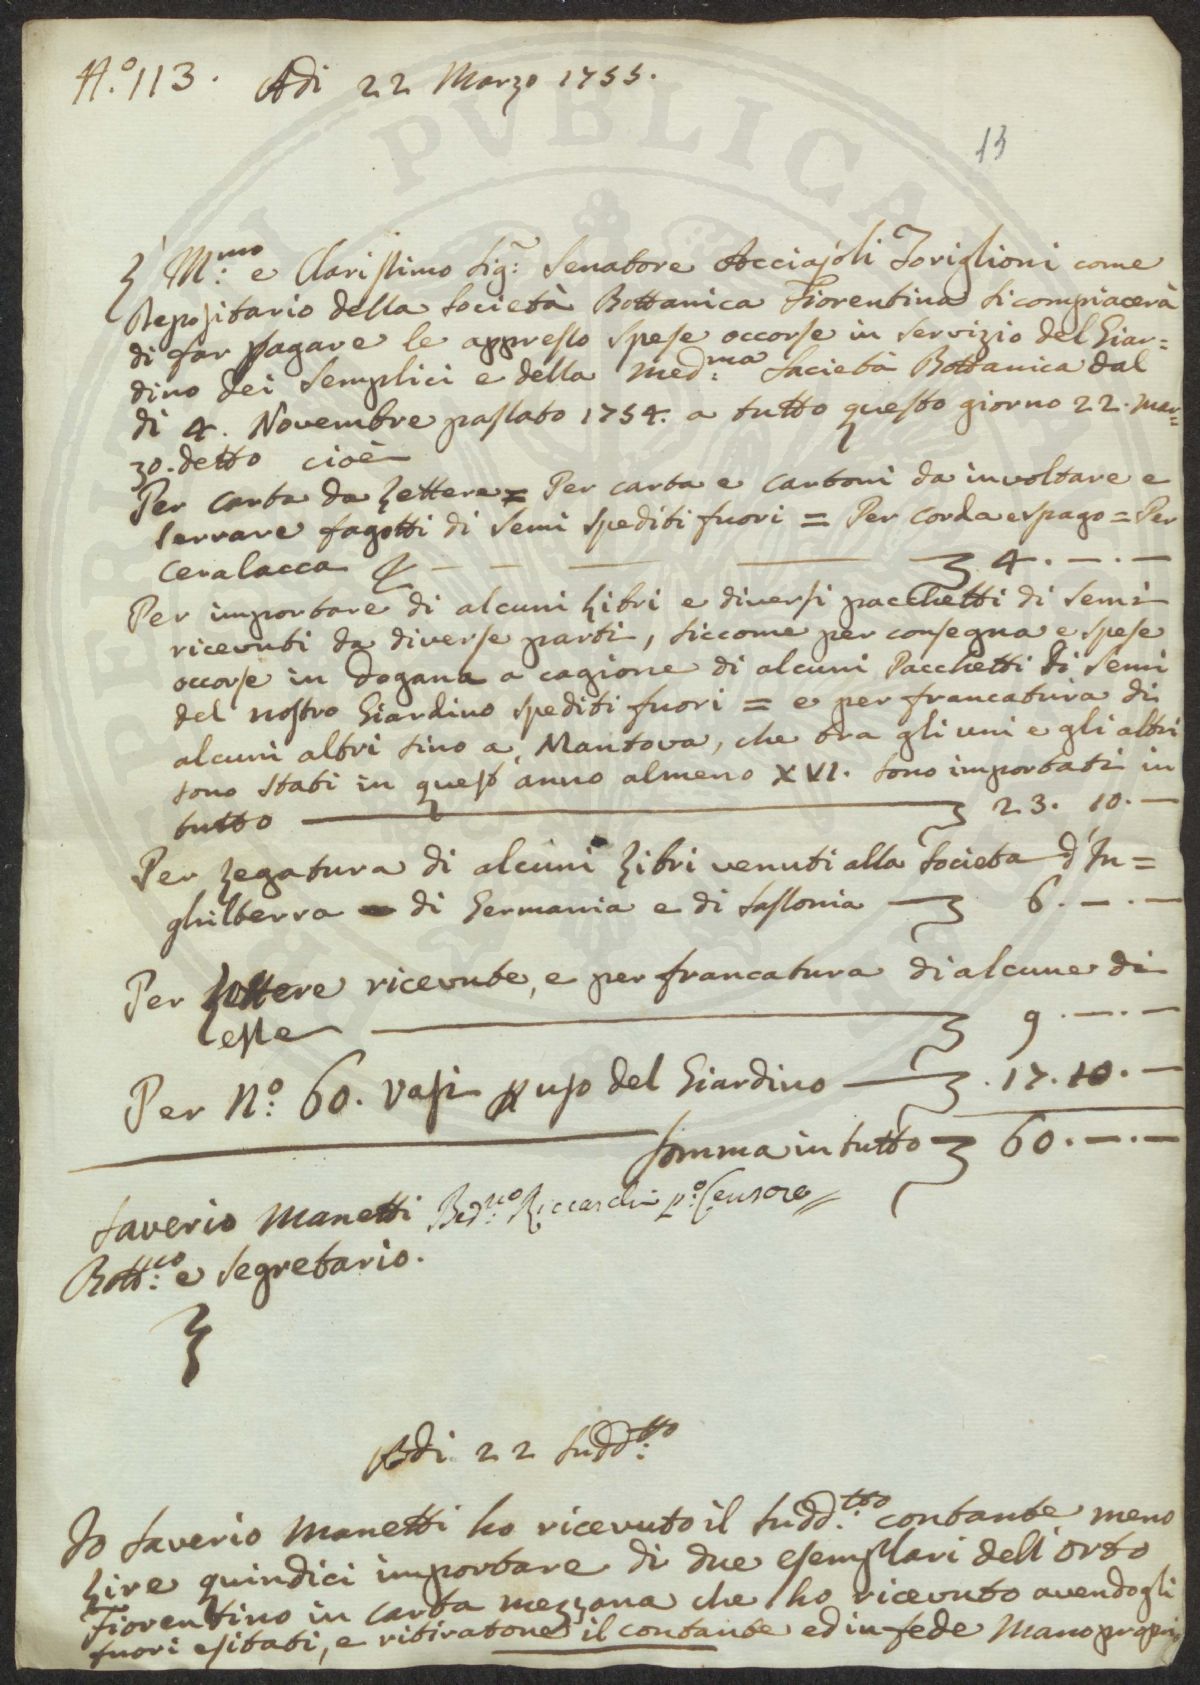 N.° 113. Adi 22 Marzo 1755.
13
L' Ill.mo e Clarissimo Sig.r Senatore Acciajoli Toriglioni come
Depositario della Società Bottanica Fiorentina si compiacerà
di far pagare le appresso spese occorse in servizio del Giar=
dino dei Semplici e della Med.ma Società Bottanica dal
dì 4. Novembre passato 1754. a tutto questo giorno 22. Mar=
zo. detto cioè
Per carta da Lettere = Per carta e cartoni da involtare e
serrare fagotti di semi spediti fuori = Per corda e spago = Per
ceralacca £ 4. — . —
Per importare di alcuni Libri e diversi pacchetti di semi
ricevuti da diverse parti, siccome per consegna e spese
occorse in dogana a cagione di alcuni Pacchetti di semi
del nostro Giardino spediti fuori = e per francatura di
alcuni altri sino a Mantova, che tra gli uni e gli altri
sono stati in quest' anno almeno XVI. sono importati in
tutto — £ 23. 10. —
Per Legatura di alcuni Libri venuti alla Società d'In=
ghilterra di Germania e di Sassonia — £ 6. — . —
Per Lettere ricevute, e per francatura di alcune di
esse — £ 9. — . —
Per N.° 60. Vasi p uso del Giardino — £ 17. 10. —
Somma in tutto £ 60. — . —
Saverio Manetti Bed.no Riccardi p.° Censore
Bott.co e Segretario.
Adi 22 Sudd.tto
Io Saverio Manetti ho ricevuto il Sudd.tto contante meno
Lire quindici importare di due esemplari dell'Orto
Fiorentino in carta mezzana che ho ricevuto avendogli
fuori esitati, e ritiratone il contante ed in fede Mano propria